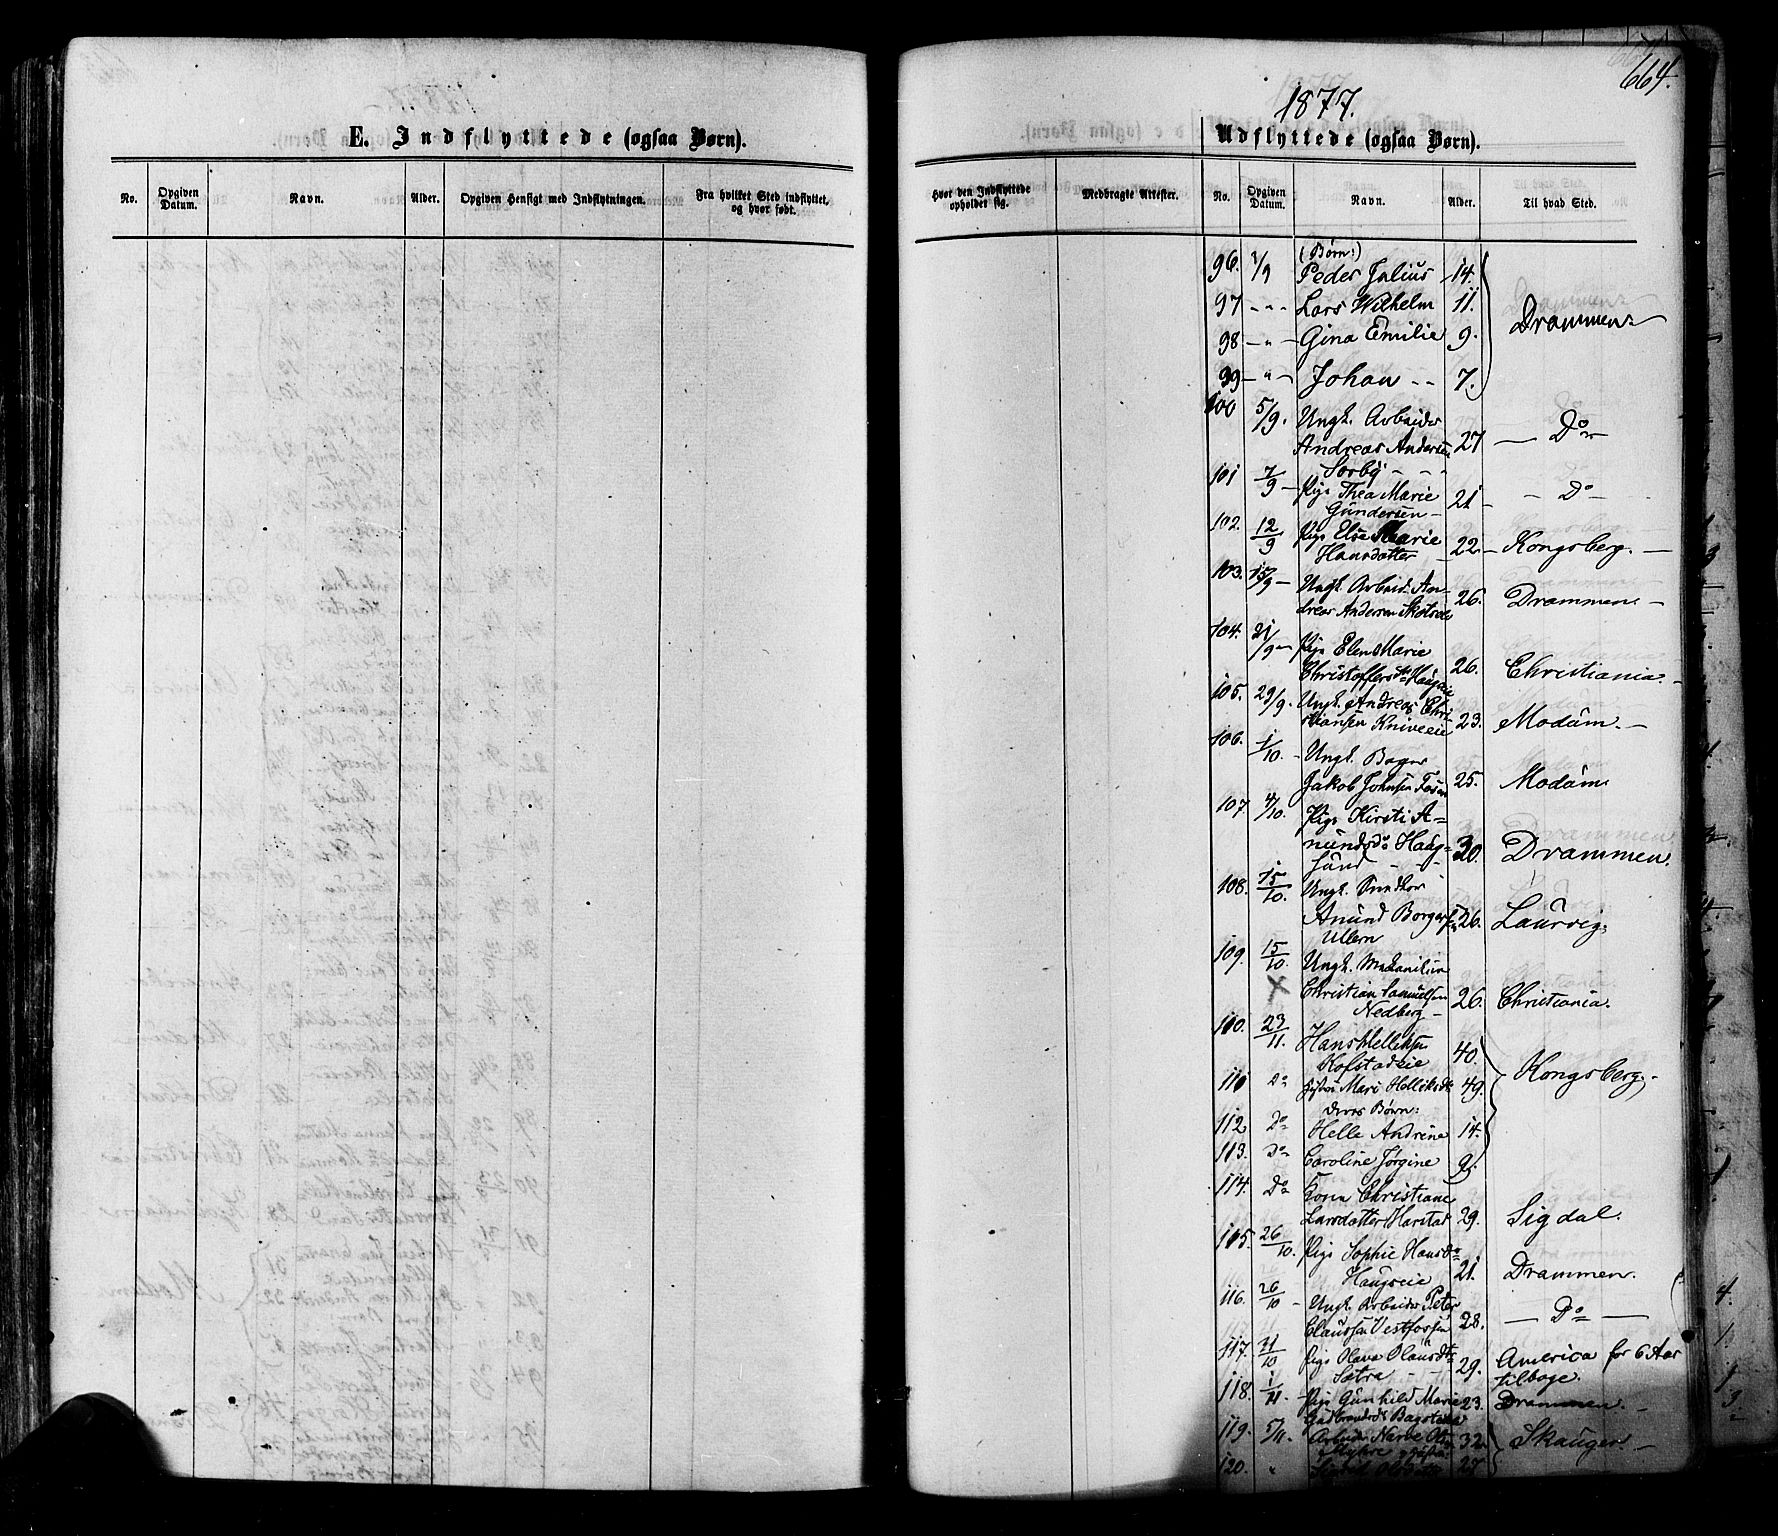 664.
1877.
E. Indflyttede (ogsaa Børn).
Udflyttede (ogsaa Børn).
No. Opgiven Datum. Navn. Alder. Opgiven Hensigt med Indflytningen. Fra hvilket Sted indflyttet, og hvor født.
Hvor den Indflyttede opholdet sig. Medbragte Attester. No. Opgiven Datum. Navn. Alder. Til hvad Sted.
(Børn:)
96. 1/9 Peder Julius 14.
97 - - - Lars Wilhelm 11. Drammen
98 - " - Gina Emilie 9.
99 - " - Johan - - 7.
100 5/9. Ungk. Arbeider
Andreas Andersen 27 - Do -
Sorby - - -
101 7/9 - Pige Thea Marie 21 - - Do -
Gundersen -
102. 12/9 Pige Else Marie
Hansdatter 22 - Kongsberg. -
103. 15/9 - Ungk. Arbeid. An-
dreas Andersen 26. Drammen -
104. 21/9 - Pige Elen Marie
Christoffersdr. Haugeie 26. Christiania -
105. 29/9. Ungk. Andreas Chri-
stiansen Kniveeie 23. Modum. -
106. 1/10. - Ungk. Bager
Jakob Johnsen 25. Modum
107. 4/10. Pige Kirsti A=
mundsdr Haug= 30. Drammen.
sund - -
108. 15/10. Ungk.
Amund Borgersen 26. Laurvig.
Ullern
109. 15/10. Ungk.
Christian Samuelsen 26. Christiania.
Nedberg -
110. 23/11. Hans Helliksen
Hofstadeie 40.
111 Do Mari Helliksdr 49. Kongsberg. -
deres Børn:
112 Do Helle Andrine 14.
113. Do Caroline Jørgine 9.
114. Do Kone Christiane
Larsdatter Harstad 29. Sigdal.
115. 26/10. Pige Sophie Hansdr
Haugseie 21. Drammen.
116. 26/10 - Ungk. Arbeider Peter
Claussen Vestfossen 28. - Do -
117. 31/10 Pige Olava Olausdtr 29. America for 6 Aar
Sætra - - tilbage.
118. 1/11 - Pige Gunhild Marie 23. Drammen. -
Gudbrandsdr
119. 5/11. Arbeider 32. Skauger -
120. " 27